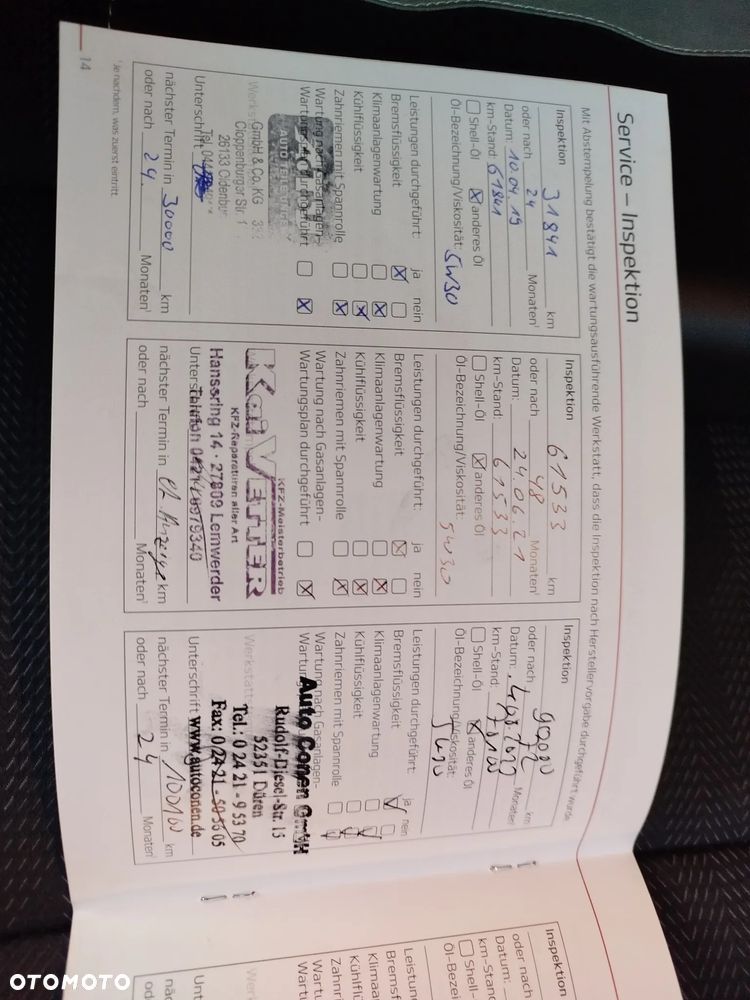 Service – Inspektion
Mit Abstempelung bestätigt die wartungsausführende Werkstatt, dass die Inspektion nach Herstellervorgabe durchgeführt wurde
Inspektion
31841 km
oder nach 24 Monaten¹
Datum: 10.04.19
km-Stand: 61841
Shell-Öl anderes Öl
Öl-Bezeichnung/Viskosität: 5W30
Leistungen durchgeführt: ja nein
Bremsflüssigkeit
Klimaanlagenwartung
Kühlflüssigkeit
Zahnriemen mit Spannrolle
Wartung nach Gasanlagen-
Wartungsplan durchgeführt
GmbH & Co. KG
Cloppenburger Str. 1
26133 Oldenburg
Tel.
Unterschrift
nächster Termin in 30000 km
oder nach 24. Monaten¹
Inspektion
61533 km
oder nach 48 Monaten¹
Datum: 24.06.21
km-Stand: 61533
Shell-Öl anderes Öl
Öl-Bezeichnung/Viskosität: 5W30
Leistungen durchgeführt: ja nein
Bremsflüssigkeit
Klimaanlagenwartung
Kühlflüssigkeit
Zahnriemen mit Spannrolle
Wartung nach Gasanlagen-
Wartungsplan durchgeführt
KFZ-Meisterbetrieb
Kai VETTER
KFZ-Reparaturen aller Art
Hansering 14 · 27809 Lemwerder
Telefon
nächster Termin in Anzeige km
oder nach Monaten¹
Inspektion
km
oder nach Monaten¹
Datum:
km-Stand:
Shell-Öl anderes Öl
Öl-Bezeichnung/Viskosität:
Leistungen durchgeführt: ja nein
Bremsflüssigkeit
Klimaanlagenwartung
Kühlflüssigkeit
Zahnriemen mit Spannrolle
Wartung nach Gasanlagen-
Auto Conen GmbH
Rudolf-Diesel-Str. 15
52351 Düren
Tel.: 0 24 21 - 9 53 70
Fax: 0 24 21 - 50 56 05
Unterschrift www.autoconen.de
nächster Termin in km
oder nach 24 Monaten¹
¹ Je nachdem, was zuerst eintritt.
14
Inspektion
oder nach
Datum:
km-Stand:
Shell-Öl
OTOMOTO